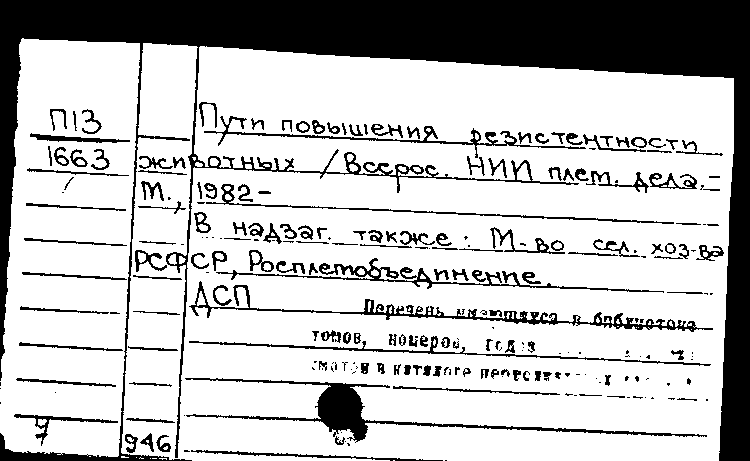 П13
1663
Пути повышения резистентности
животных / Всерос. НИИ плем. дела.-
М., 1982-
В надзаг. также: М-во сел. хоз-ва
РСФСР, Росплемобъединение.
ДСП
Перечень имеющихся в библиотеке
томов, номеров, годов
в каталоге
946